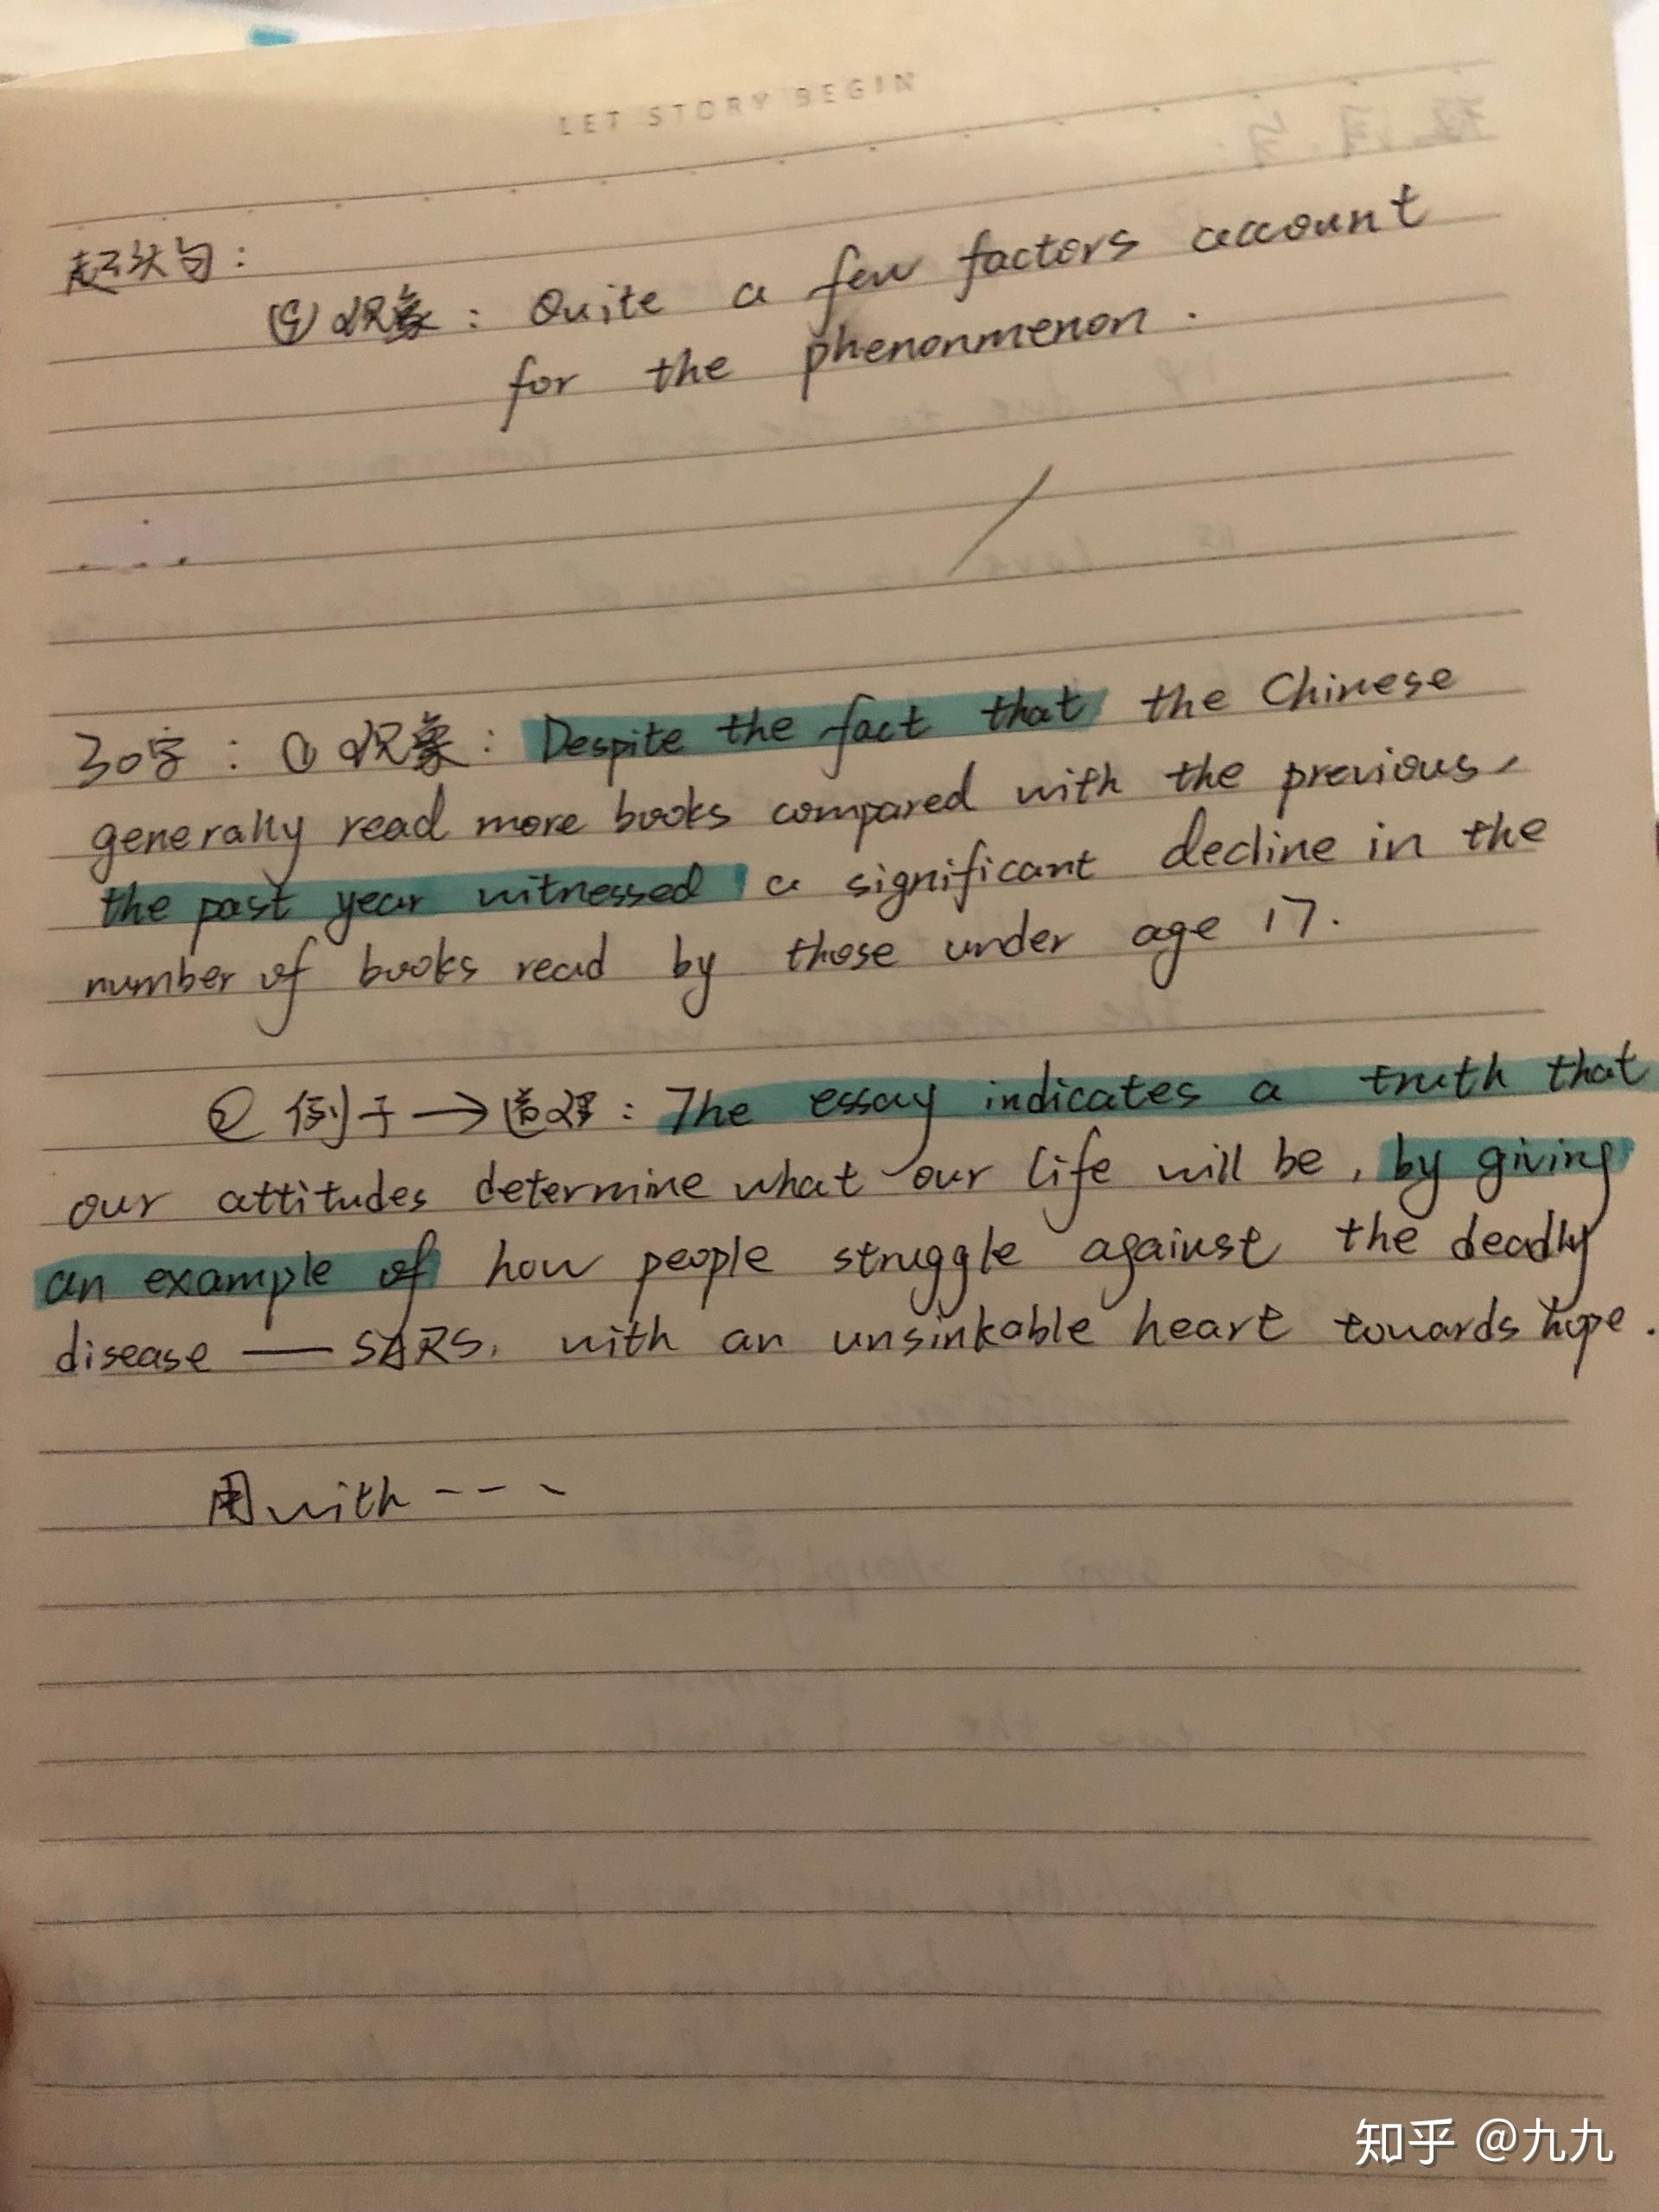 LET STORY BEGIN
起头句：
④现象： Quite a few factors account
for the phenonmenon.
30字：①现象：Despite the fact that the Chinese
generally read more books compared with the previous,
the past year witnessed a significant decline in the
number of books read by those under age 17.
②例子→道理：The essay indicates a truth that
our attitudes determine what our life will be, by giving
an example of how people struggle against the deadly
disease — SARS, with an unsinkable heart towards hope.
用with ----
知乎 @九九